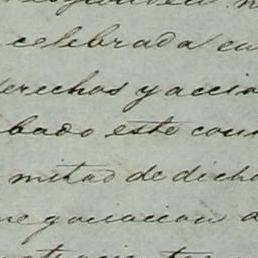 celebrada en
derechos y accio
bado este con
mitad de dich
negociacion d